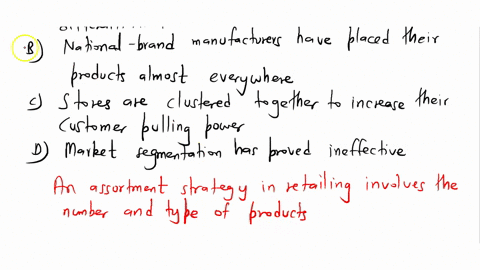 B) National-brand manufacturers have placed their
products almost everywhere
C) Stores are clustered together to increase their
customer pulling power
D) Market segmentation has proved ineffective
An assortment strategy in retailing involves the
number and type of products